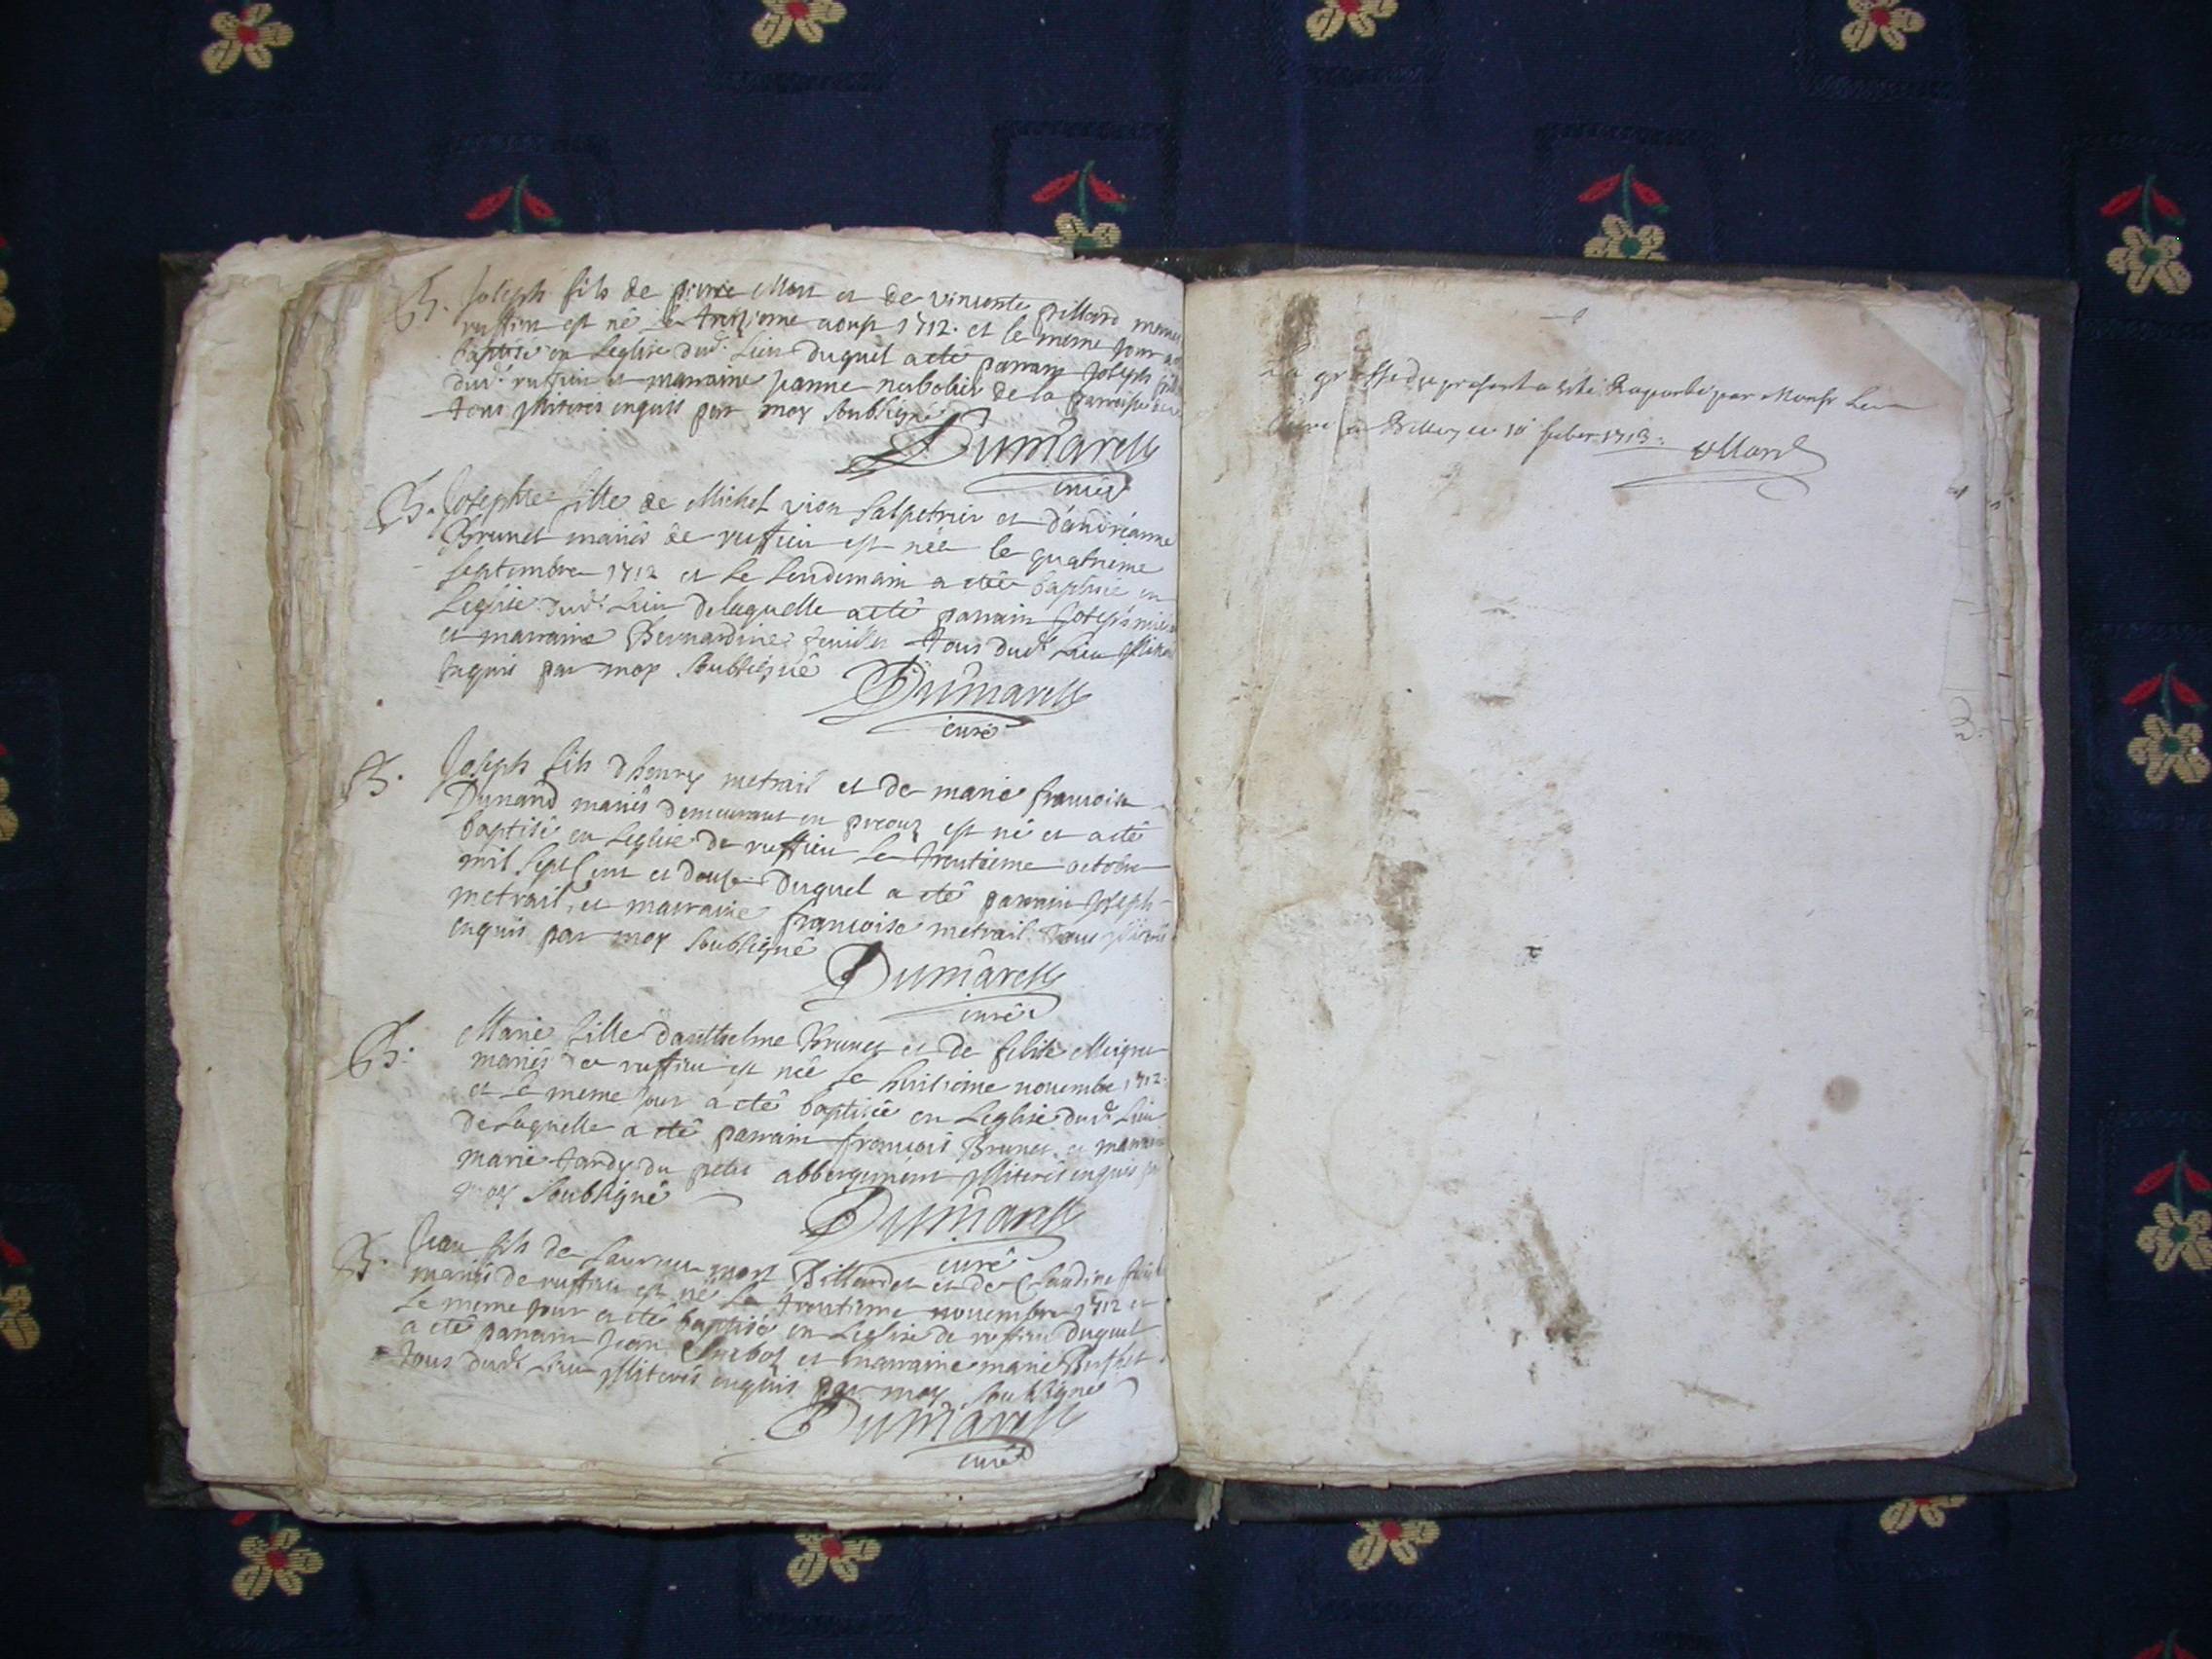 B. Joseph fils de pierre Mort et de vincente pillard
ruffieu est né le treizieme aoust 1712. et le meme jour a
baptisé en Leglise dud. Lieu duquel a eté parrain Joseph
dud. ruffieu et marraine jeanne de la parroisse
tous illiterés enquis par moy soubsigné
Dumarest
curé
B. Josephte fille de Michel vion salpetrier et d'andréanne
Brunet mariés de ruffieu est née le quatrieme
septembre 1712 et le lendemain a eté baptisée en
Leglise dud. Lieu de laquelle a eté parrain Joseph
et marraine Bernardine tous dud. Lieu
enquis par moy soubsigné
Dumarest
curé
B. Joseph fils d'henry metrail et de marie francoise
Dunand mariés demeurant en est né et a eté
baptisé en Leglise de ruffieu le trentieme octobre
mil sept cent et douse duquel a eté parrain Joseph
metrail, et marraine francoise metrail tous
enquis par moy soubsigné
Dumarest
curé
B. Marie fille d'anthelme Brunet et de felise
mariés de ruffieu est née le huitieme novembre 1712.
et le meme jour a eté baptisée en Leglise dud. Lieu
de laquelle a eté parrain francois Brunet et
marie tardy du petit abbergement illiterés enquis
moy soubsigné
Dumarest
curé
B. Jean fils de Laurent mort Billardet et de Claudine
mariés de ruffieu est né le trentieme novembre 1712 et
le meme jour a eté baptisé en Leglise de ruffieu duquel
a eté parrain Jean et marraine marie
tous dud. Lieu illiterés enquis par moy soubsigné
Dumarest
curé
La grosse du present a esté Raporté par Monsr Le
curé a Belley le 10 1713.